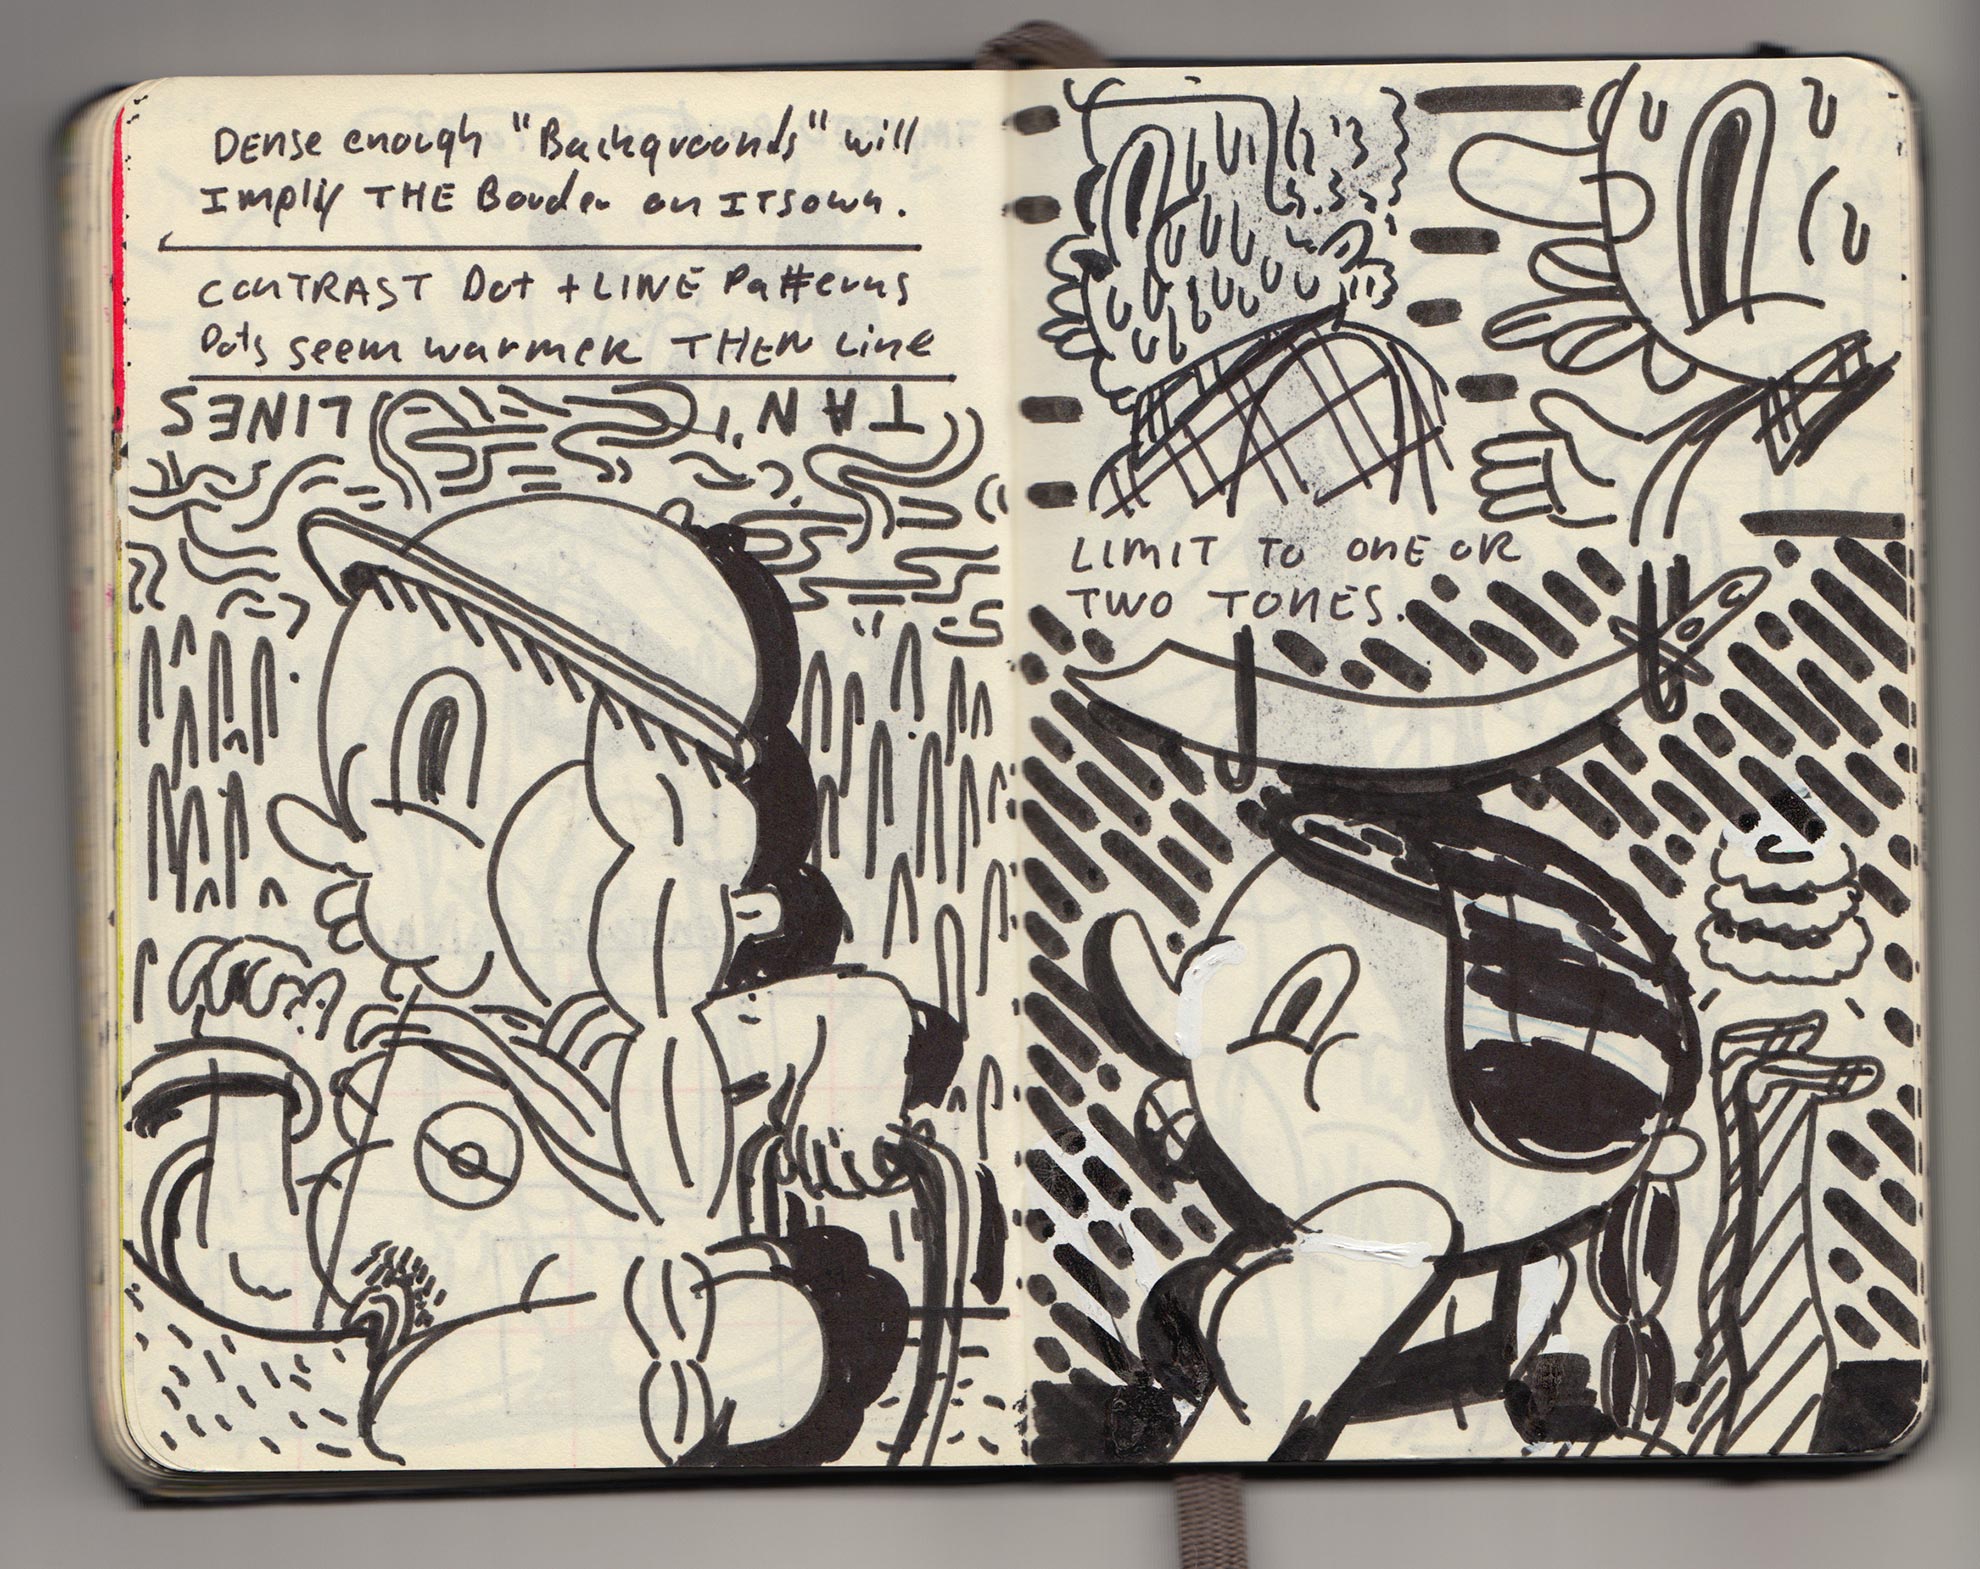 DENSE enough "Backgrounds" will
Imply THE Border on ITSown.
CONTRAST Dot + LINE Patterns
Dots seem warmer THEN Line
TAN LINES
LIMIT TO ONE OR
TWO TONES.